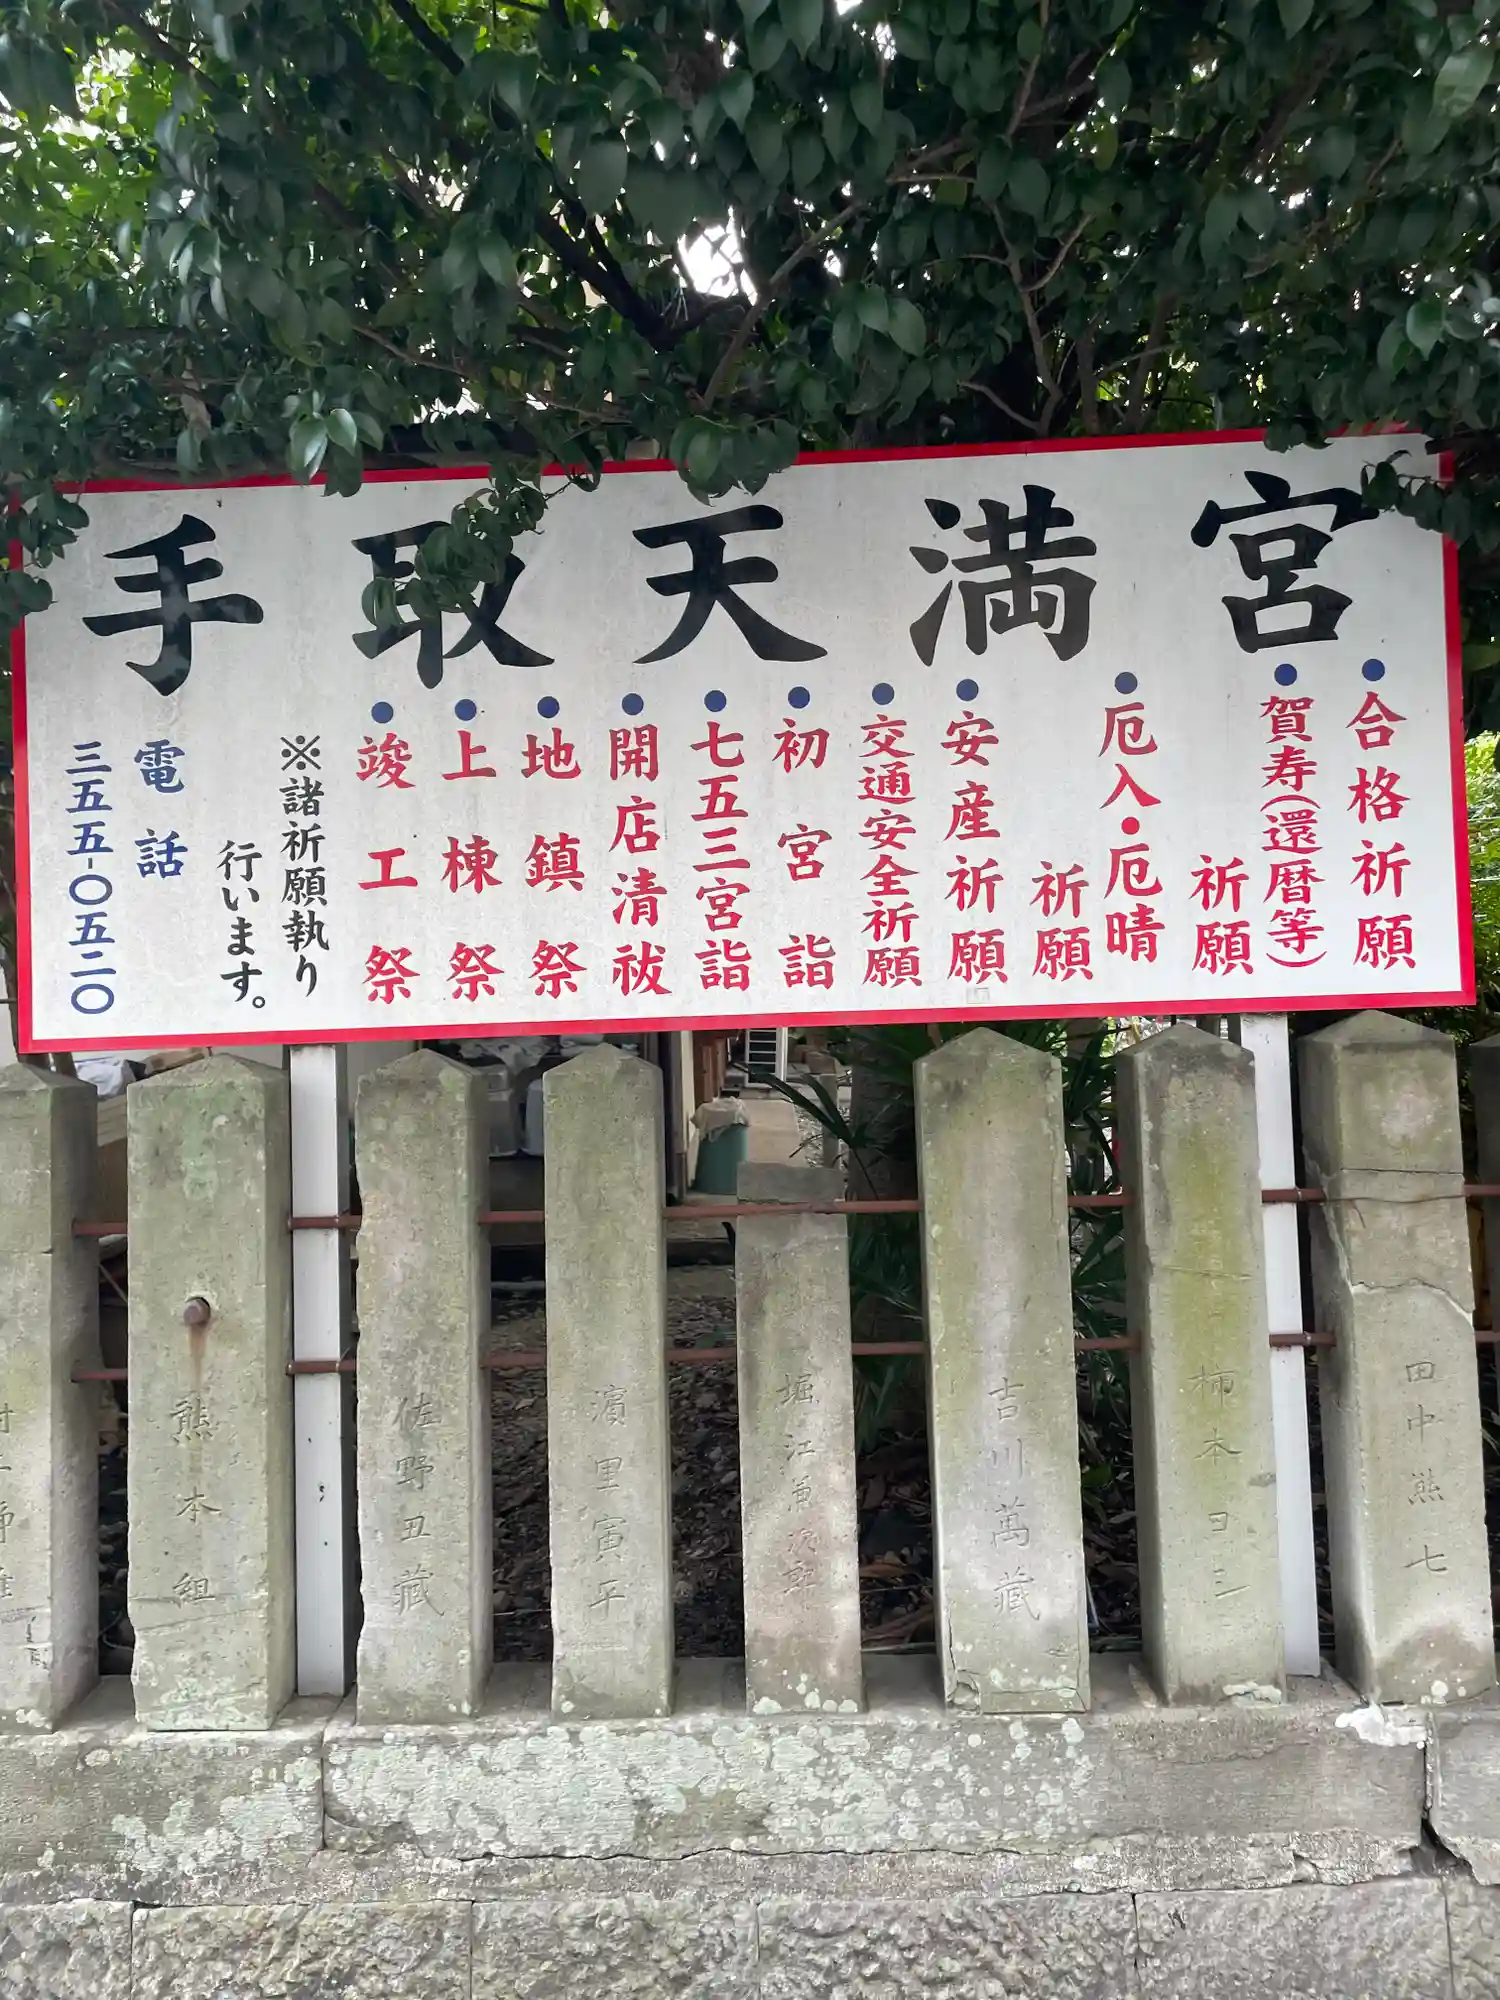 手取天満宮
・合格祈願
・賀寿(還暦等)
祈願
・厄入・厄晴
祈願
・安産祈願
・交通安全祈願
・初宮詣
・七五三宮詣
・開店清祓
・地鎮祭
・上棟祭
・竣工祭
※諸祈願執り
行います。
電話
三五五-〇五二〇
田中熊七
柿本ヨシ
吉川萬藏
堀江
濵里寅平
佐野丑藏
熊本組